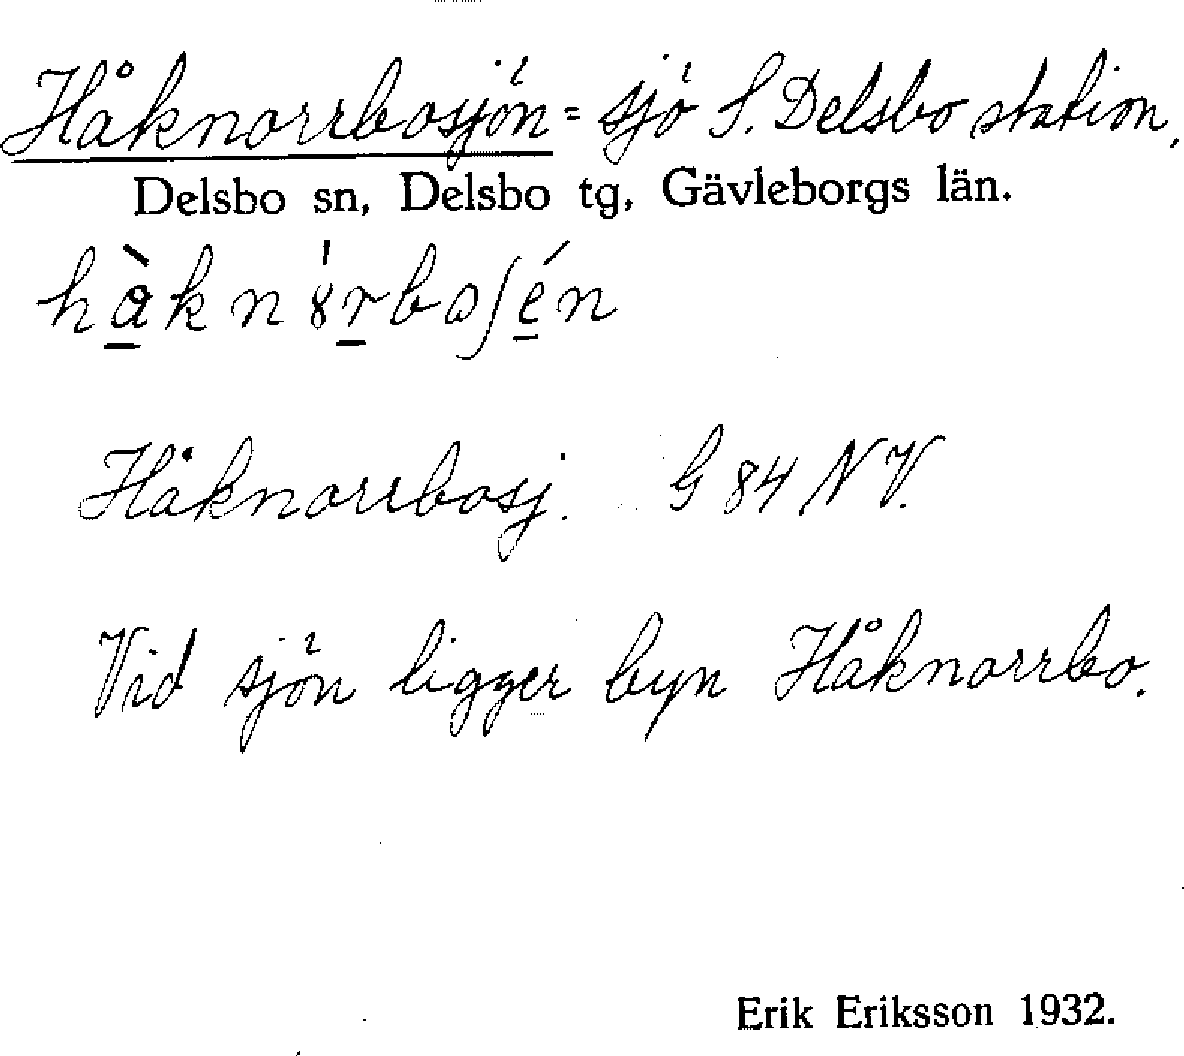 Håknorrbosjön = sjö S. Delsbo station,
Delsbo sn, Delsbo tg, Gävleborgs län.
hàkn8́rboʃén
Håknorrbosj. G 84 NV.
Vid sjön ligger byn Håknorrbo.
Erik Eriksson 1932.